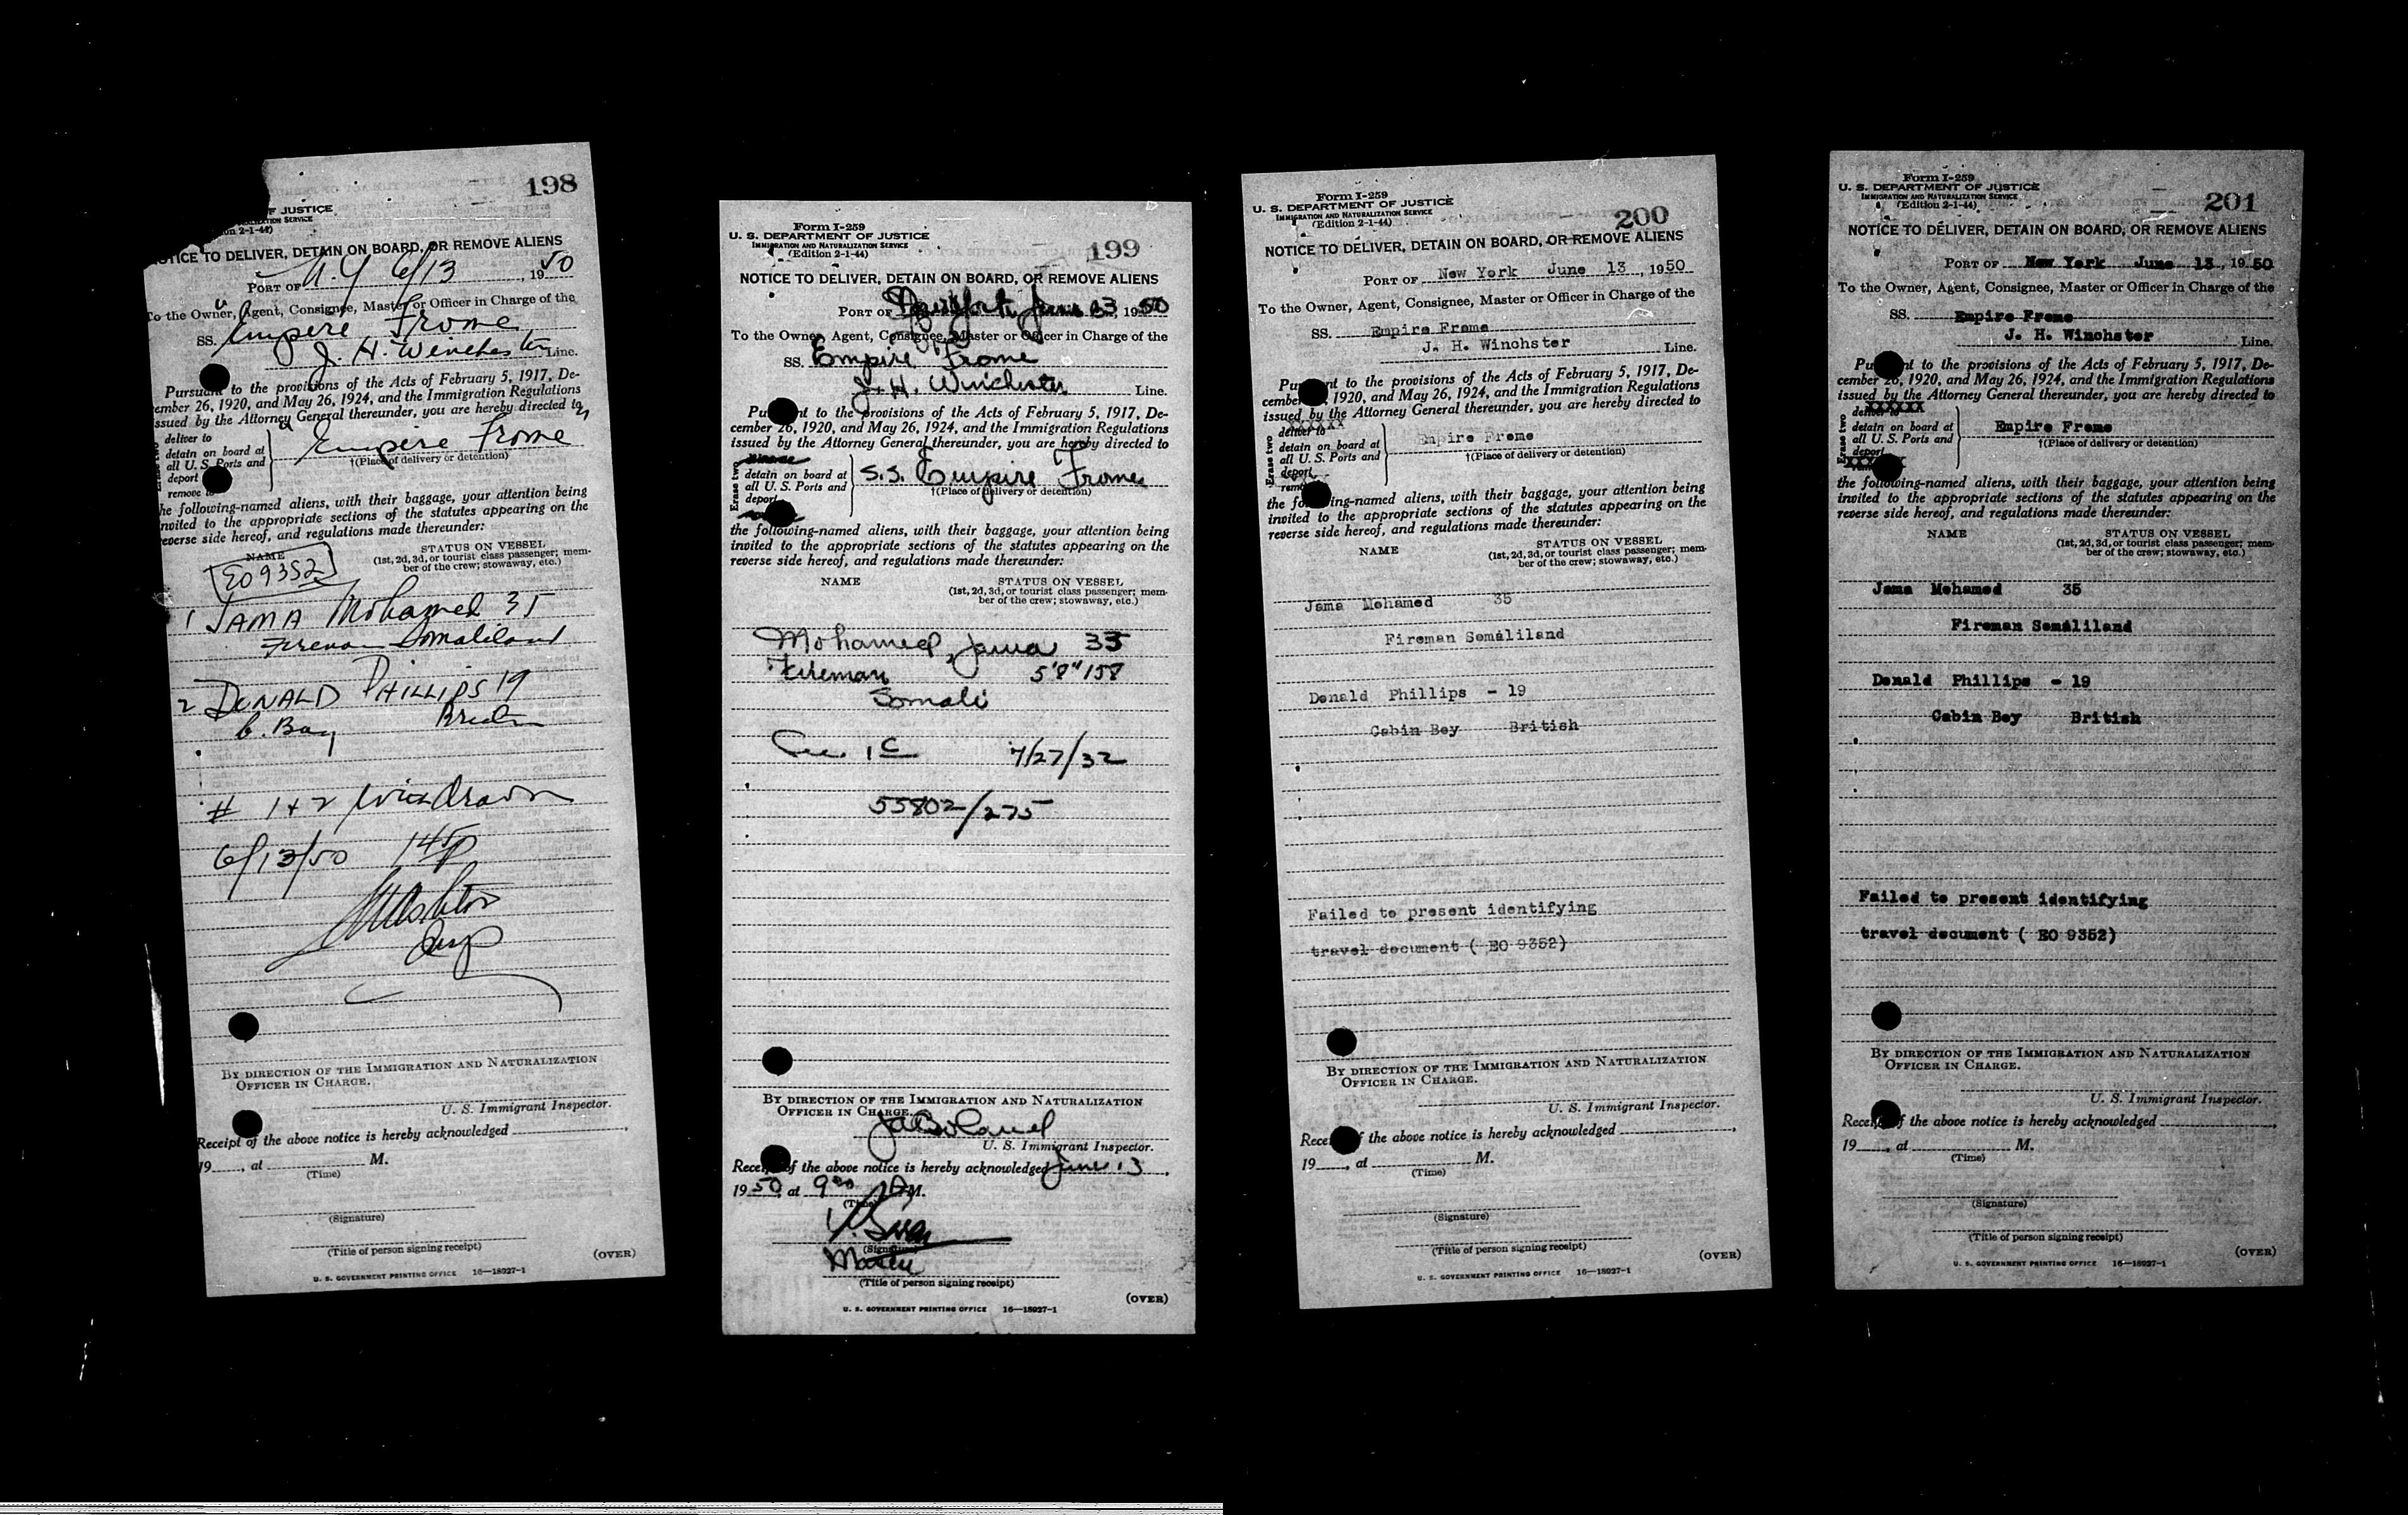 198
OF JUSTICE
ATION SERVICE
on 2-1-44)
OTICE TO DELIVER, DETAIN ON BOARD, OR REMOVE ALIENS
PORT OF N.Y 6/13, 1950
To the Owner, Agent, Consignee, Master or Officer in Charge of the
SS. "Empire Frome
J. H. Winchester Line.
Pursuant to the provisions of the Acts of February 5, 1917, De-
ember 26, 1920, and May 26, 1924, and the Immigration Regulations
ssued by the Attorney General thereunder, you are hereby directed to
deliver to
detain on board at
all U. S. Ports and
deport
remove to
"Empire Frome"
†(Place of delivery or detention)
he following-named aliens, with their baggage, your attention being
nvited to the appropriate sections of the statutes appearing on the
everse side hereof, and regulations made thereunder:
NAME STATUS ON VESSEL
(1st, 2d, 3d, or tourist class passenger; mem-
ber of the crew; stowaway, etc.)
EO 9352
1 JAMA Mohamed 35
Fireman Somaliland
2 DONALD PHILLIPS 19
C. Boy British
# 1 + 2 Withdrawn
6/13/50 145p
Insp
BY DIRECTION OF THE IMMIGRATION AND NATURALIZATION
OFFICER IN CHARGE.
U. S. Immigrant Inspector.
Receipt of the above notice is hereby acknowledged
19, at M.
(Time)
(Signature)
(Title of person signing receipt)
(OVER)
U. S. GOVERNMENT PRINTING OFFICE 16—18927-1
Form I-259
U. S. DEPARTMENT OF JUSTICE
IMMIGRATION AND NATURALIZATION SERVICE
(Edition 2-1-44)
199
NOTICE TO DELIVER, DETAIN ON BOARD, OR REMOVE ALIENS
PORT OF New York June 13, 1950
To the Owner, Agent, Consignee, Master or Officer in Charge of the
SS. Empire Frome
J. H. Winchester Line.
Pu nt to the provisions of the Acts of February 5, 1917, De-
cember 26, 1920, and May 26, 1924, and the Immigration Regulations
issued by the Attorney General thereunder, you are hereby directed to
Erase two
detain on board at
all U. S. Ports and
deport
S.S. Empire Frome
†(Place of delivery or detention)
the following-named aliens, with their baggage, your attention being
invited to the appropriate sections of the statutes appearing on the
reverse side hereof, and regulations made thereunder:
NAME STATUS ON VESSEL
(1st, 2d, 3d, or tourist class passenger; mem-
ber of the crew; stowaway, etc.)
Mohamed, Jama 35
Fireman 5'8" 158
Somali
1C 7/27/32
55802/275
BY DIRECTION OF THE IMMIGRATION AND NATURALIZATION
OFFICER IN CHARGE.
U. S. Immigrant Inspector.
Recei of the above notice is hereby acknowledged June 13,
1950, at 9 00 A M.
(Time)
(Signature)
Master
(Title of person signing receipt)
(OVER)
U. S. GOVERNMENT PRINTING OFFICE 16—18927-1
Form I-259
U. S. DEPARTMENT OF JUSTICE
IMMIGRATION AND NATURALIZATION SERVICE
(Edition 2-1-44)
200
NOTICE TO DELIVER, DETAIN ON BOARD, OR REMOVE ALIENS
PORT OF New York June 13, 1950
To the Owner, Agent, Consignee, Master or Officer in Charge of the
SS. Empire Frome
J. H. Winchster Line.
Pu nt to the provisions of the Acts of February 5, 1917, De-
cember 1920, and May 26, 1924, and the Immigration Regulations
issued by the Attorney General thereunder, you are hereby directed to
Erase two
deliver to
detain on board at
all U. S. Ports and
deport
Empire Frome
†(Place of delivery or detention)
the fo ing-named aliens, with their baggage, your attention being
invited to the appropriate sections of the statutes appearing on the
reverse side hereof, and regulations made thereunder:
NAME STATUS ON VESSEL
(1st, 2d, 3d, or tourist class passenger; mem-
ber of the crew; stowaway, etc.)
Jama Mohamed 35
Fireman Somaliland
Donald Phillips - 19
Cabin Boy British
Failed to present identifying
travel document ( EO 9352)
BY DIRECTION OF THE IMMIGRATION AND NATURALIZATION
OFFICER IN CHARGE.
U. S. Immigrant Inspector.
Rece f the above notice is hereby acknowledged
19, at M.
(Time)
(Signature)
(Title of person signing receipt)
(OVER)
U. S. GOVERNMENT PRINTING OFFICE 16—18927-1
Form I-259
U. S. DEPARTMENT OF JUSTICE
IMMIGRATION AND NATURALIZATION SERVICE
(Edition 2-1-44)
201
NOTICE TO DELIVER, DETAIN ON BOARD, OR REMOVE ALIENS
PORT OF New York June 13, 1950
To the Owner, Agent, Consignee, Master or Officer in Charge of the
SS. Empire Frome
J. H. Winchster Line.
Pu nt to the provisions of the Acts of February 5, 1917, De-
cember 26, 1920, and May 26, 1924, and the Immigration Regulations
issued by the Attorney General thereunder, you are hereby directed to
Erase two
deliver to
detain on board at
all U. S. Ports and
deport
Empire Frome
†(Place of delivery or detention)
the following-named aliens, with their baggage, your attention being
invited to the appropriate sections of the statutes appearing on the
reverse side hereof, and regulations made thereunder:
NAME STATUS ON VESSEL
(1st, 2d, 3d, or tourist class passenger; mem-
ber of the crew; stowaway, etc.)
Jama Mohamed 35
Fireman Somaliland
Donald Phillips - 19
Cabin Boy British
Failed to present identifying
travel document ( EO 9352)
BY DIRECTION OF THE IMMIGRATION AND NATURALIZATION
OFFICER IN CHARGE.
U. S. Immigrant Inspector.
Recei f the above notice is hereby acknowledged
19, at M.
(Time)
(Signature)
(Title of person signing receipt)
(OVER)
U. S. GOVERNMENT PRINTING OFFICE 16—18927-1